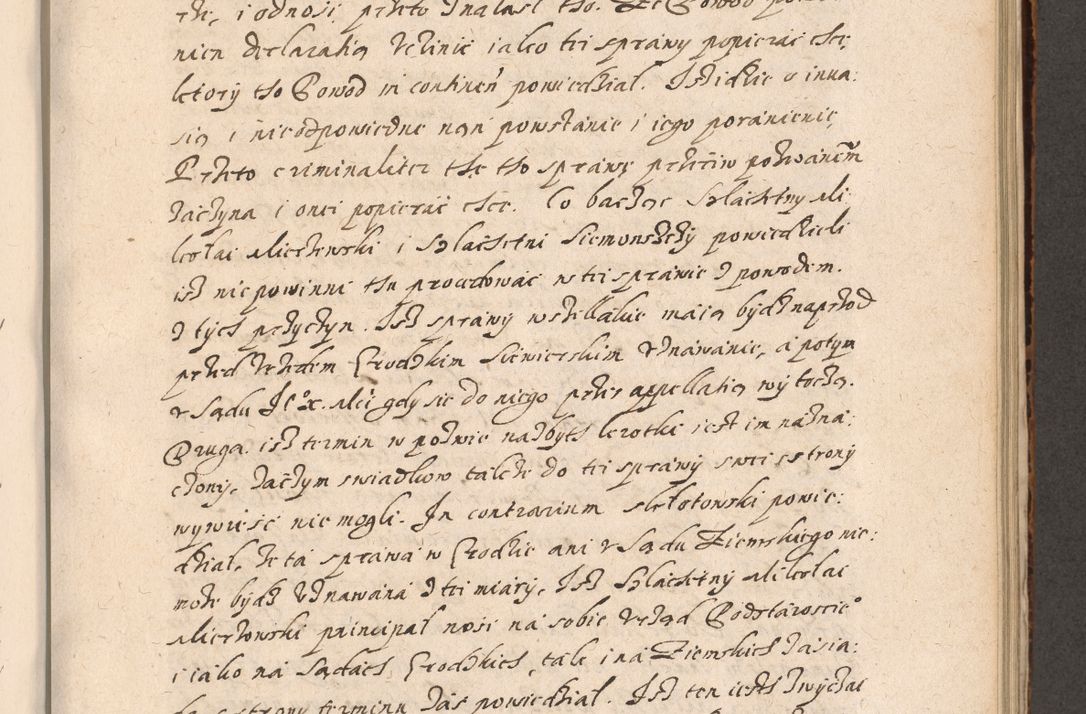 rch, i odnosi przeto znalasł tho. Ze Powod
nien declaratią vczinić iako tei sprawy popierać chcę
ktory tho Powod in continen powiedział. Isz idzie o inua:
sią i nieodpowiedne nań powstanie i iego poranienie,
Przeto criminaliter the tho sprawę przeciw pozwanem
zaczyna i onei popierać chce. Co bacząc Szlachetny Mi
kołai Mierzewski i Szlachetni Siemonszczy powiedzieli
isz nie powinni thu procedować w tei sprawie z powodem.
z tych przyczyn. Isz sprawy wszellakie maią bydz naprzod
przed Vrzędem Grodzkim Siewierskim vznawanie, a potym
v Sądu Je°x. Mci gdy sie do niego przez appellatią wytoczą.
Druga. isz termin w pozwie nazbyth krotki iest im nazna:
czony, zaczym swiadkow także do tei sprawy swei s strony
wywiesć nie mogli. In contrarium Skrzotowski powie:
dział, że ta sprawa w Grodzie ani v Sądu Ziemskiego nie:
może bydz vznawana z tei miary, Isz Szlachetny Mikołai
Mierzowski principal nosi na sobie Vrząd Podstaroscie°
i iako na Sądach Grodzkich, tak i na Ziemskich zasia:
strony terminu zas powiedział. Isz ten iesth zwyczai